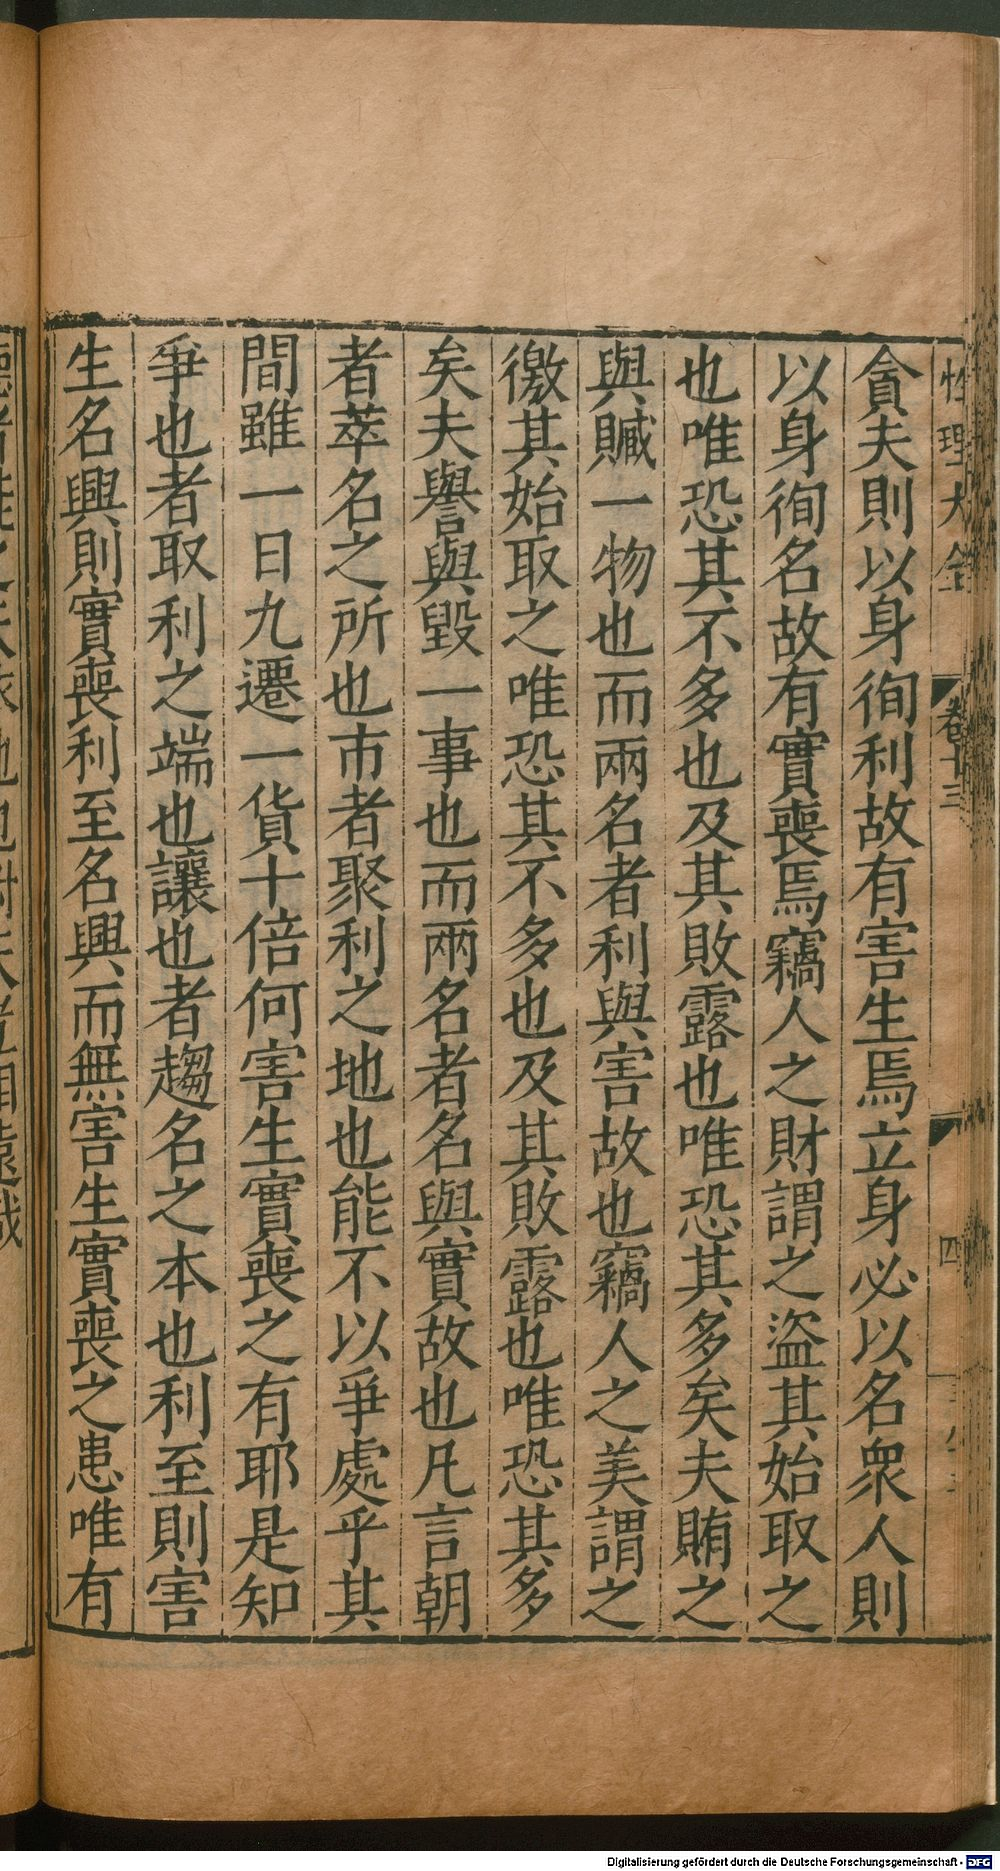 性理大全 卷十三 四
貪夫則以身徇利故有害生焉立身必以名衆人則
以身徇名故有實喪焉竊人之財謂之盜其始取之
也唯恐其不多也及其敗露也唯恐其多矣夫賄之
與贓一物也而兩名者利與害故也竊人之美謂之
徼其始取之唯恐其不多也及其敗露也唯恐其多
矣夫譽與毀一事也而兩名者名與實故也凡言朝
者萃名之所也市者聚利之地也能不以爭處乎其
間雖一日九遷一貨十倍何害生實喪之有耶是知
爭也者取利之端也讓也者趨名之本也利至則害
生名興則實喪利至名興而無害生實喪之患唯有
Digitalisierung gefördert durch die Deutsche Forschungsgemeinschaft - DFG